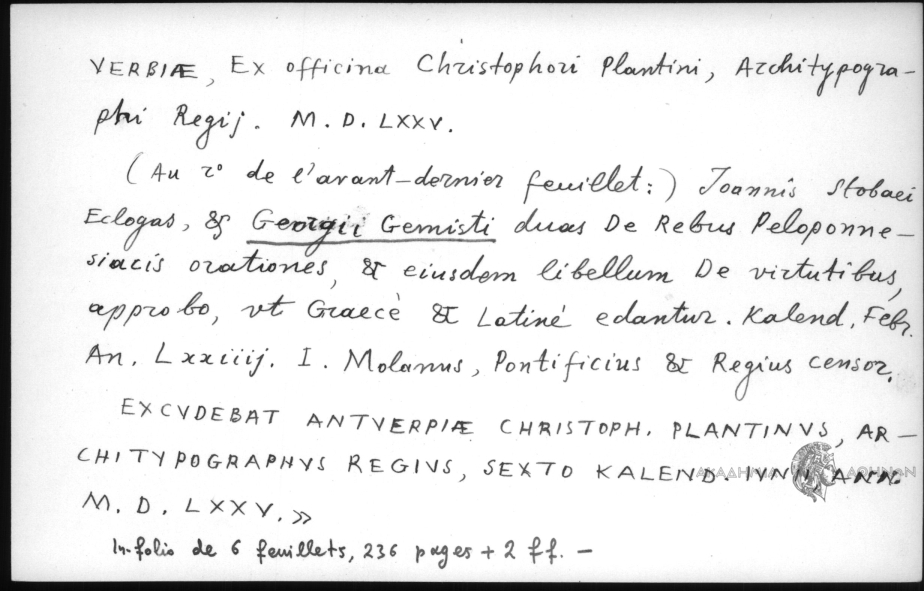 VERBIÆ, Ex officina Christophori Plantini, Architypogra-
phi Regij. M. D. LXXV.
(Au ro de l'avant-dernier feuillet:) Joannis Stobaei
Eclogas, & Georgii Gemisti duas De Rebus Peloponne-
siacis orationes, & eiusdem libellum De virtutibus,
approbo, vt Graecè & Latiné edantur. Kalend. Febr.
An. Lxxiiij. I. Molanus, Pontificius & Regius censor.
EXCVDEBAT ANTVERPIÆ CHRISTOPH. PLANTINVS, AR-
CHITYPOGRAPHVS REGIVS, SEXTO KALEND. IVNII, ANN.
M. D. LXXV. »
In-folio de 6 feuillets, 236 pages + 2 ff. -
ΑΚΑΔΗΜΙΑ ΑΘΗΝΩΝ